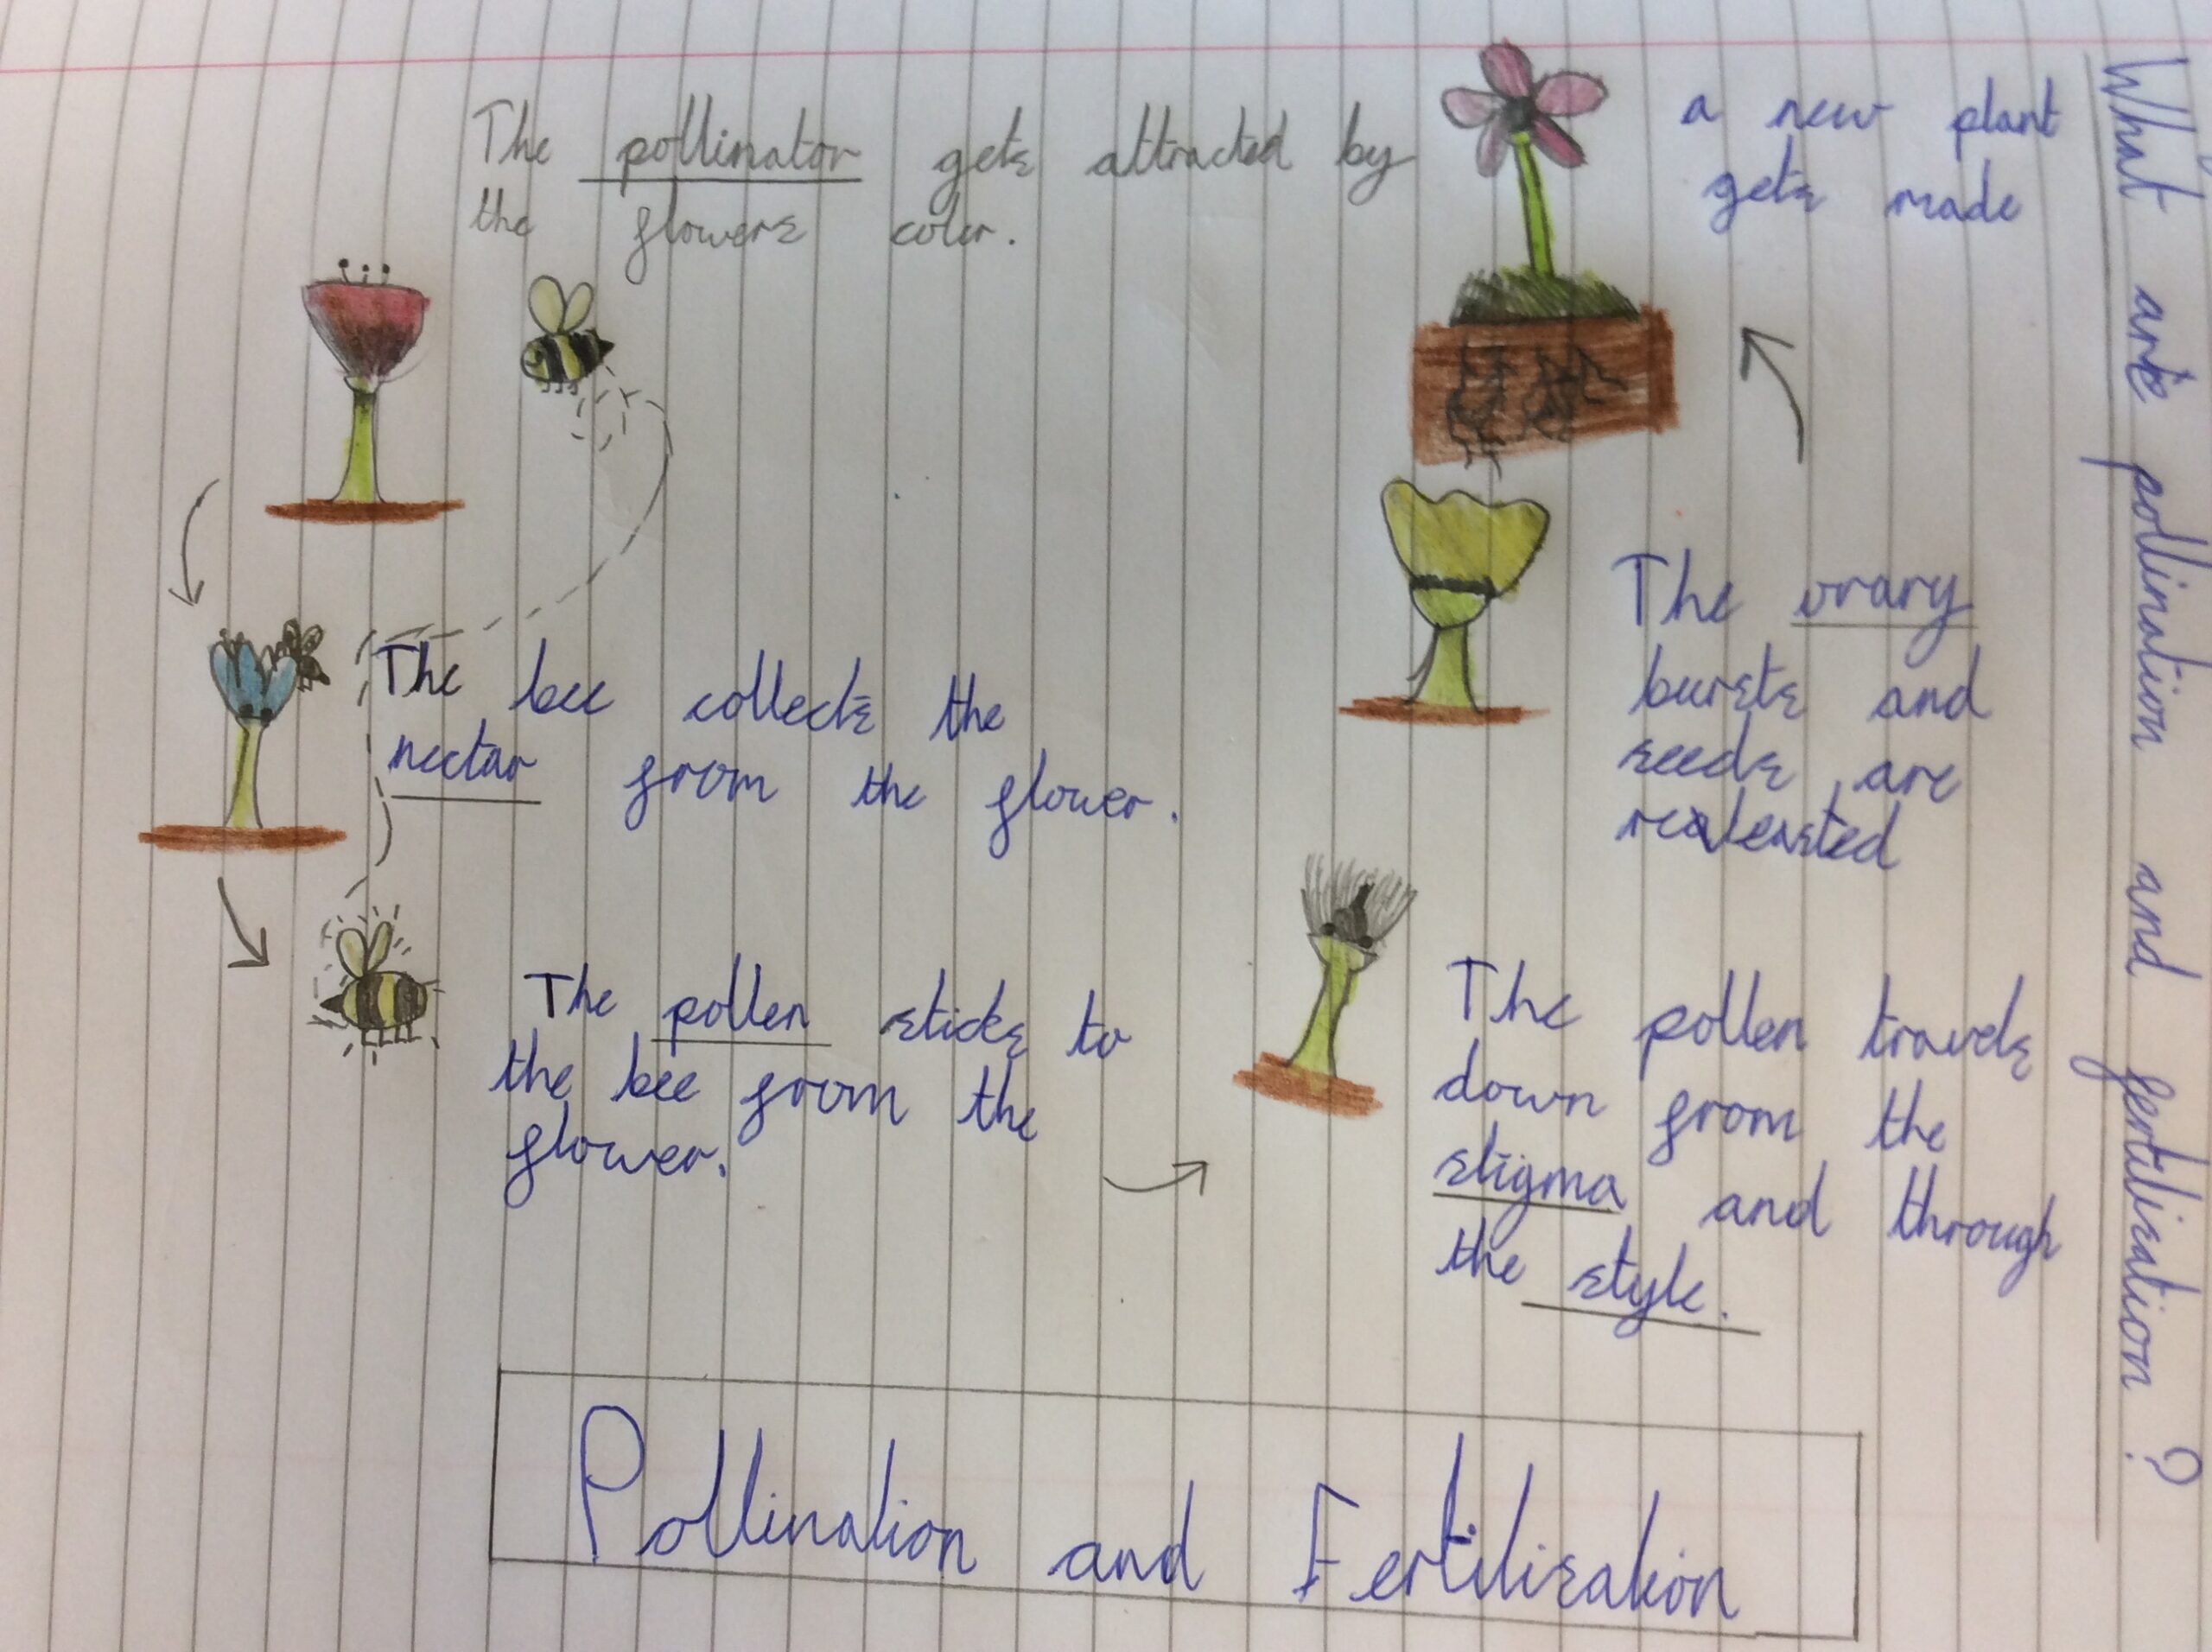 What are pollination and fertilisation ?
The pollinator gets attracted by
the flowers color.
The bee collects the
nectar from the flower.
The pollen sticks to
the bee from the
flower.
The pollen travels
down from the
stigma and through
the style.
The ovary
bursts and
seeds are
realeasted
a new plant
gets made
Pollination and Fertilisation